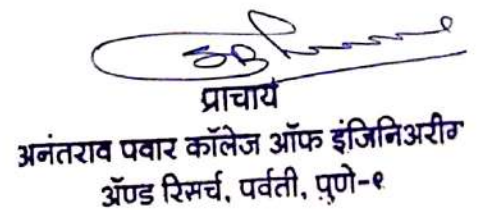 प्राचार्य
अनंतराव पवार कॉलेज ऑफ इंजिनिअरींग
अ‍ॅण्ड रिसर्च, पर्वती, पुणे-९